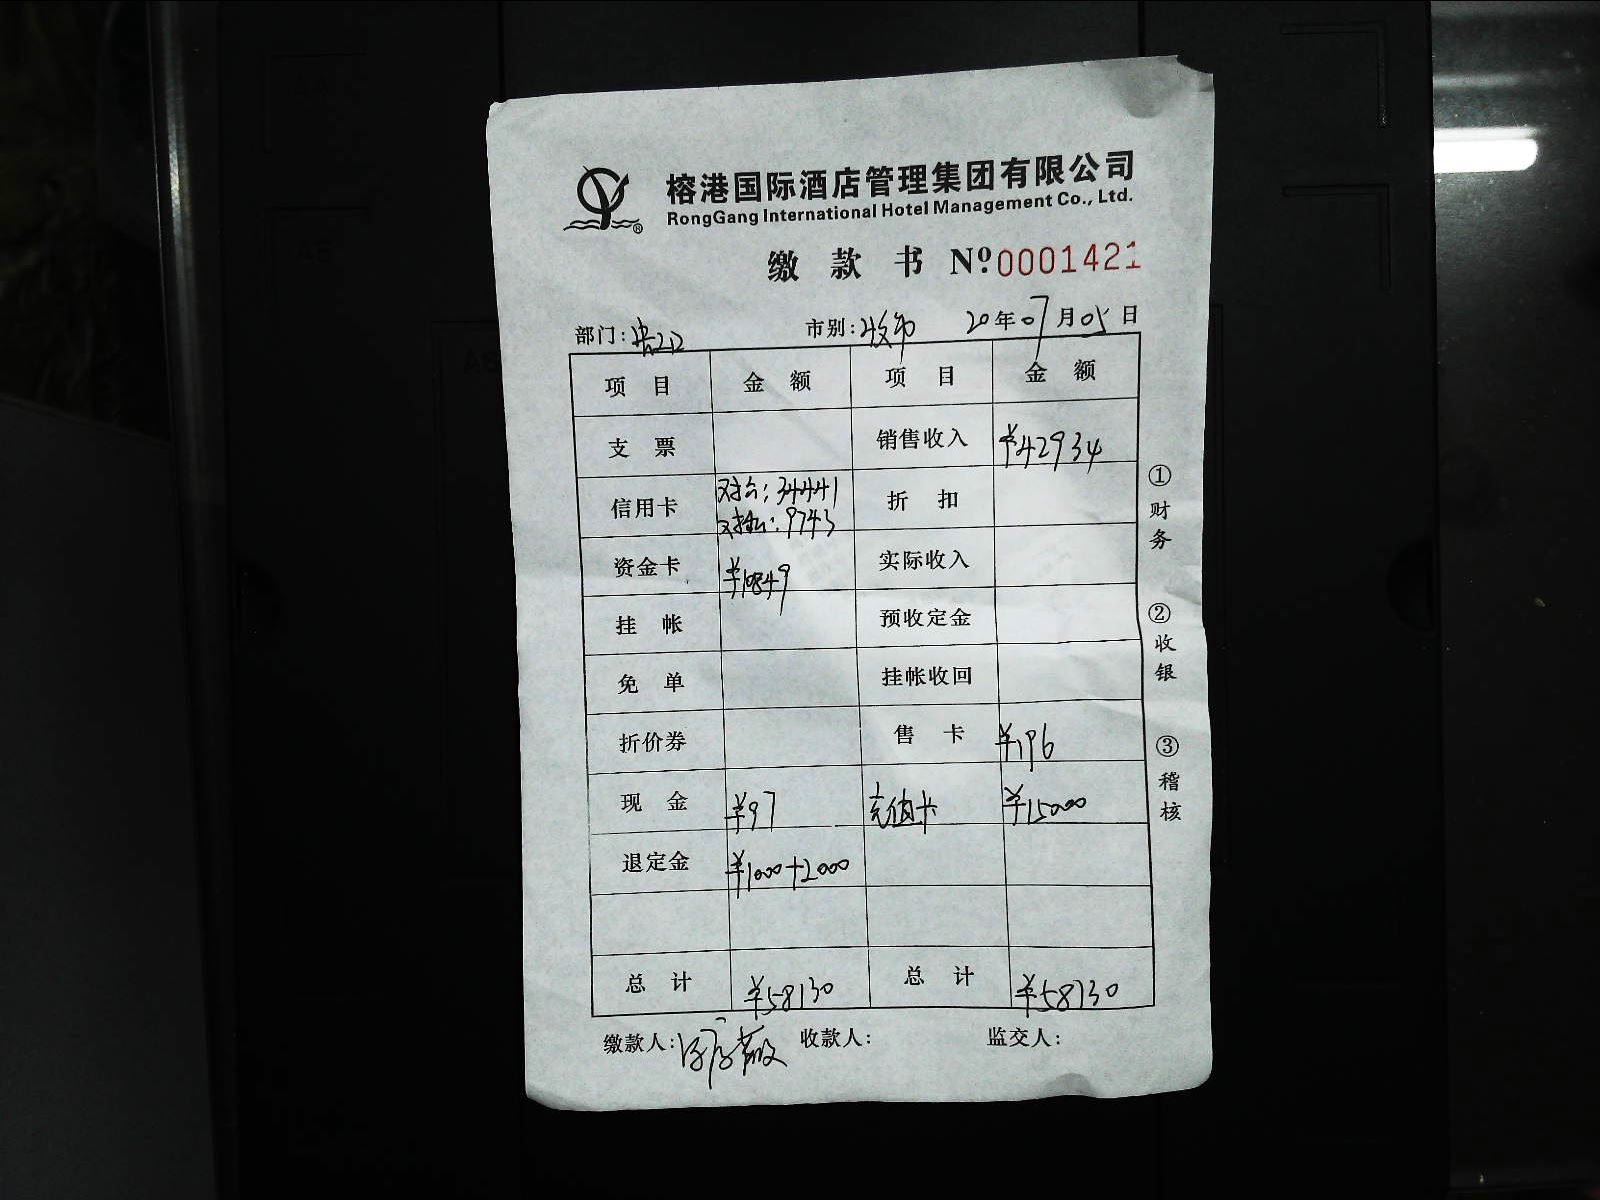 榕港国际酒店管理集团有限公司
RongGang International Hotel Management Co., Ltd.
缴款书 Nº 0001421
部门: 市别: 20年07月05日
项目 金额 项目 金额
支票 销售收入 ¥42934
信用卡 对公:34441 9743 折扣
资金卡 ¥10849 实际收入
挂帐 预收定金
免单 挂帐收回
折价券 售卡 ¥196
现金 ¥97 充值卡 ¥15000
退定金 ¥1000+2000
总计 ¥58130 总计 ¥58130
缴款人: 收款人: 监交人:
①财务
②收银
③稽核